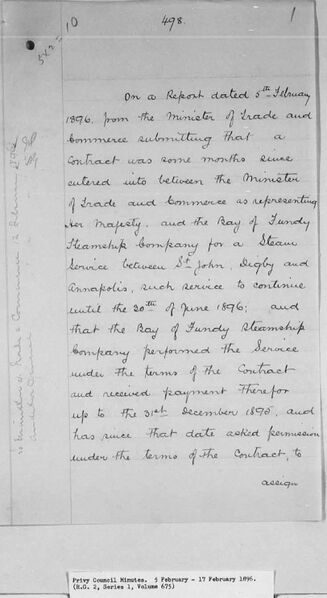 498.
1
5x2=10
On a Report dated 5th February
1896, from the Minister of Trade and
Commerce submitting that a
Contract was some months since
entered into between the Minister
of Trade and Commerce as representing
Her Majesty, and the Bay of Fundy
Steamship Company for a Steam
Service between St John, Digby and
Annapolis, such service to continue
until the 30th of June 1896; and
that the Bay of Fundy Steamship
Company performed the Service
under the terms of the Contract
and received payment therefor
up to the 31st December 1895, and
has since that date asked permission
under the terms of the Contract, to
assign
Minister of Trade & Commerce
Privy Council Minutes. 5 February - 17 February 1896.
(R.G. 2, Series 1, Volume 675)